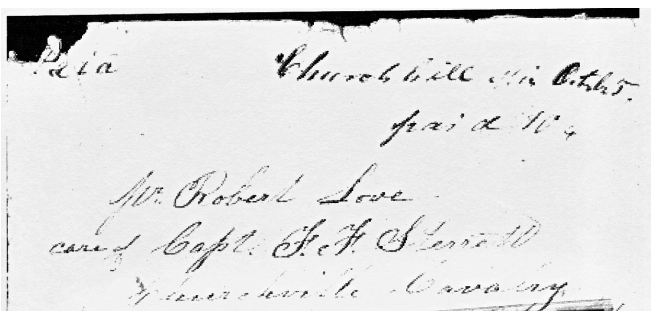 Paid Churchhill Oct 5.
paid 10
Mr. Robert Love
care of Capt. F. F. Sterrett
Churchville Cavalry